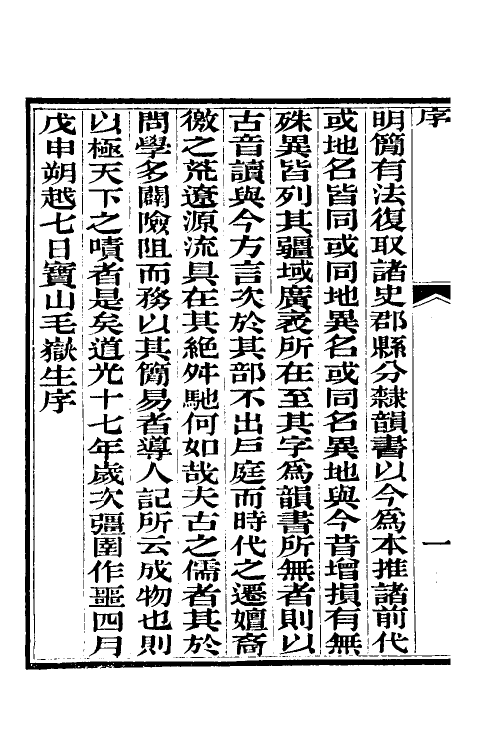 序
一
明簡有法復取諸史郡縣分隸韻書以今爲本推諸前代
或地名皆同或同地異名或同名異地與今昔增損有無
殊異皆列其疆域廣袤所在至其字爲韻書所無者則以
古音讀與今方言次於其部不出戶庭而時代之遷嬗裔
徼之荒遼源流具在其絕舛馳何如哉夫古之儒者其於
問學多闢險阻而務以其簡易者導人記所云成物也則
以極天下之嘖者是矣道光十七年歲次彊圉作噩四月
戊申朔越七日寶山毛嶽生序